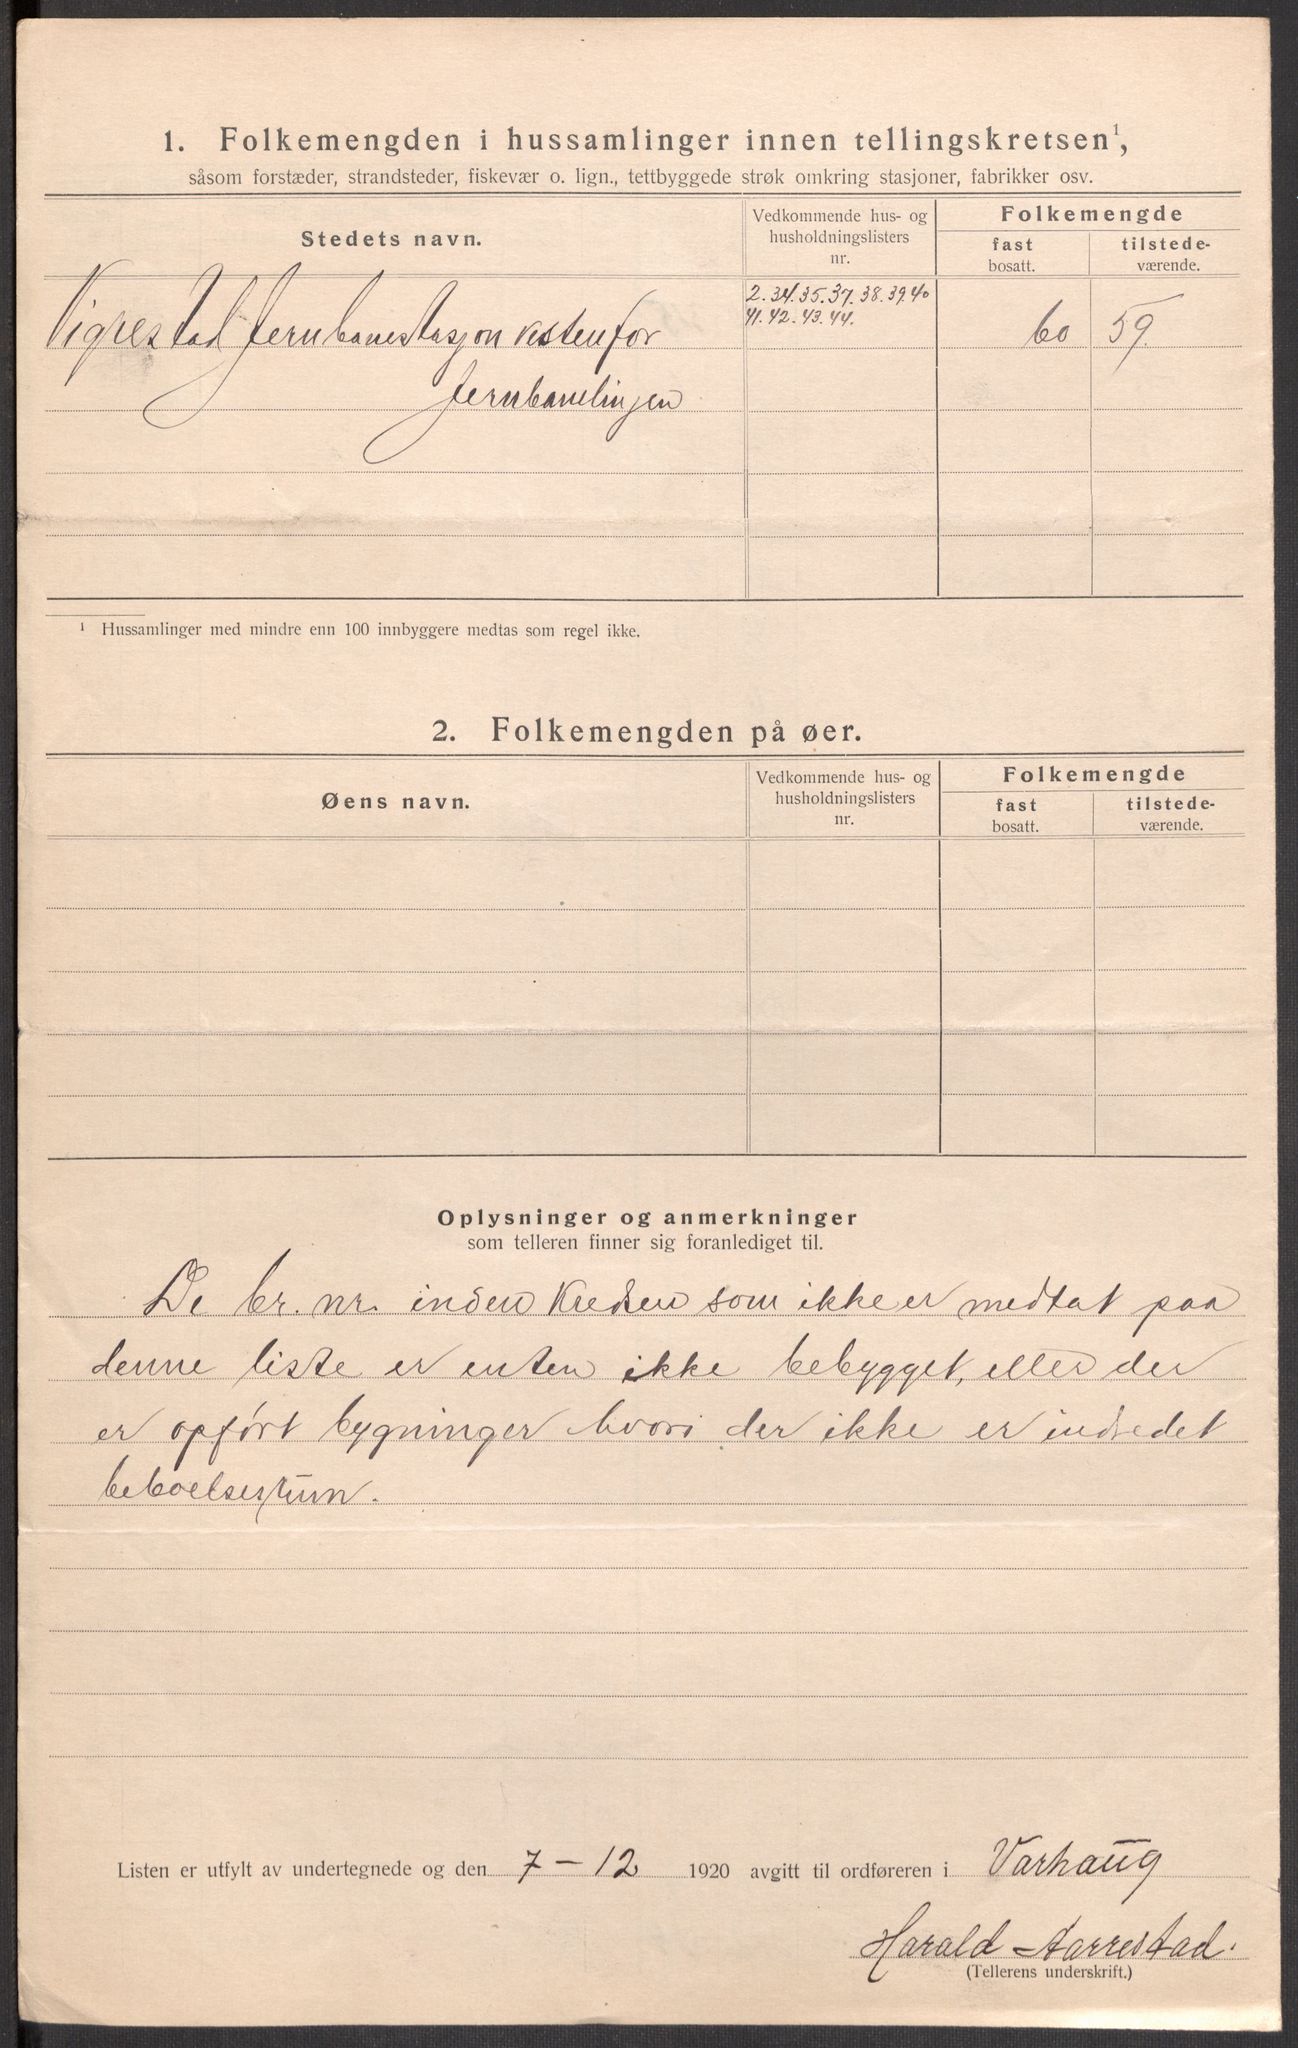 1. Folkemengden i hussamlinger innen tellingskretsen¹,
såsom forstæder, strandsteder, fiskevær o. lign., tettbyggede strøk omkring stasjoner, fabrikker osv.
Stedets navn.
Vedkommende hus- og
husholdningslisters
nr.
Folkemengde
fast
bosatt.
tilstede-
værende.
Vigrestad Jernbanestasjon vestenfor
Jernbanelinjen
2. 34. 35. 37. 38. 39. 40
41. 42. 43. 44.
60
59.
¹ Hussamlinger med mindre enn 100 innbyggere medtas som regel ikke.
2. Folkemengden på øer.
Øens navn.
Vedkommende hus- og
husholdningslisters
nr.
Folkemengde
fast
bosatt.
tilstede-
værende.
Oplysninger og anmerkninger
som telleren finner sig foranlediget til.
De br. nr. inden Kredsen som ikke er medtat paa
denne liste er enten ikke bebygget, eller der
er opført bygninger hvori der ikke er indredet
beboelsesrum.
Listen er utfylt av undertegnede og den 7-12 1920 avgitt til ordføreren i Varhaug
Harald Aarrestad.
(Tellerens underskrift.)